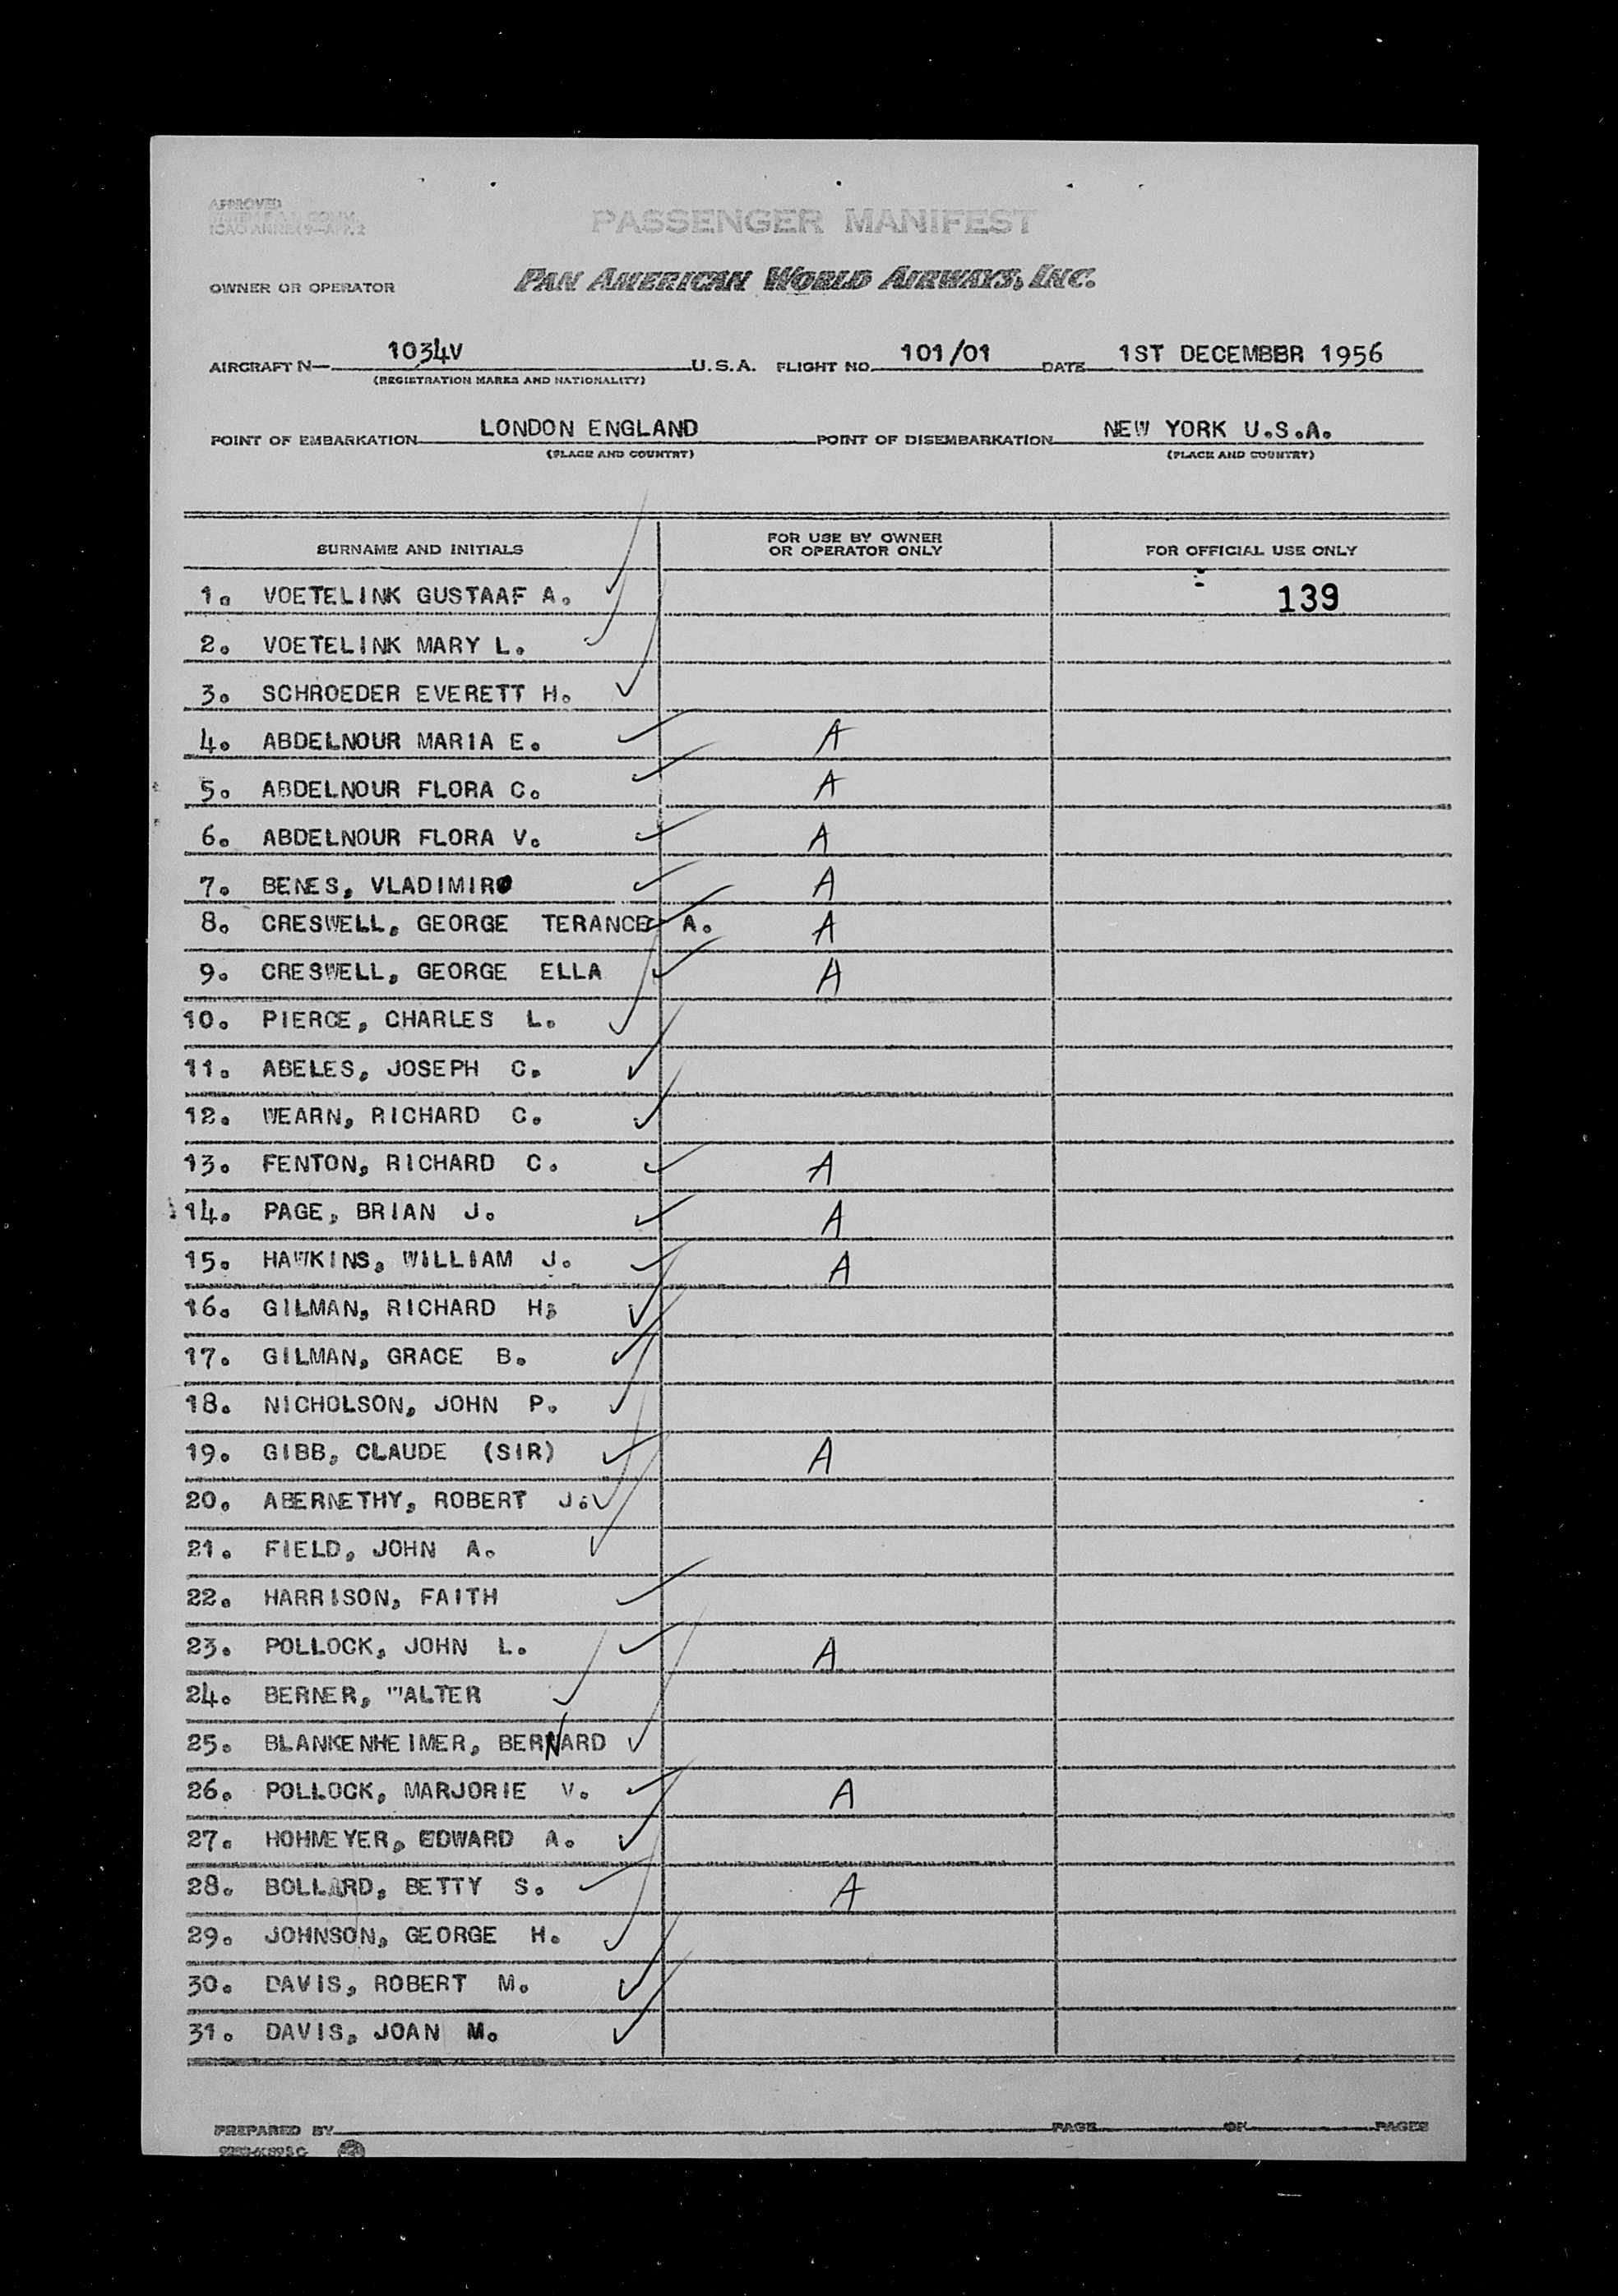 APPROVED
ICAO ANNEX 9—APP. 2
PASSENGER MANIFEST
OWNER OR OPERATOR PAN AMERICAN WORLD AIRWAYS, INC.
AIRCRAFT N— 1034V U.S.A. FLIGHT NO. 101/01 DATE 1ST DECEMBBR 1956
(REGISTRATION MARKS AND NATIONALITY)
POINT OF EMBARKATION LONDON ENGLAND POINT OF DISEMBARKATION NEW YORK U.S.A.
(PLACE AND COUNTRY) (PLACE AND COUNTRY)
SURNAME AND INITIALS FOR USE BY OWNER OR OPERATOR ONLY FOR OFFICIAL USE ONLY
1. VOETELINK GUSTAAF A. 139
2. VOETELINK MARY L.
3. SCHROEDER EVERETT H.
4. ABDELNOUR MARIA E. A
5. ABDELNOUR FLORA C. A
6. ABDELNOUR FLORA V. A
7. BENES, VLADIMIR A
8. CRESWELL, GEORGE TERANCE A. A
9. CRESWELL, GEORGE ELLA A
10. PIERCE, CHARLES L.
11. ABELES, JOSEPH C.
12. WEARN, RICHARD C.
13. FENTON, RICHARD C. A
14. PAGE, BRIAN J. A
15. HAWKINS, WILLIAM J. A
16. GILMAN, RICHARD H;
17. GILMAN, GRACE B.
18. NICHOLSON, JOHN P.
19. GIBB, CLAUDE (SIR) A
20. ABERNETHY, ROBERT J.
21. FIELD, JOHN A.
22. HARRISON, FAITH
23. POLLOCK, JOHN L. A
24. BERNER, "ALTER
25. BLANKENHEIMER, BERNARD
26. POLLOCK, MARJORIE V. A
27. HOHMEYER, EDWARD A.
28. BOLLARD, BETTY S. A
29. JOHNSON, GEORGE H.
30. DAVIS, ROBERT M.
31. DAVIS, JOAN M.
PREPARED BY PAGE OF PAGES